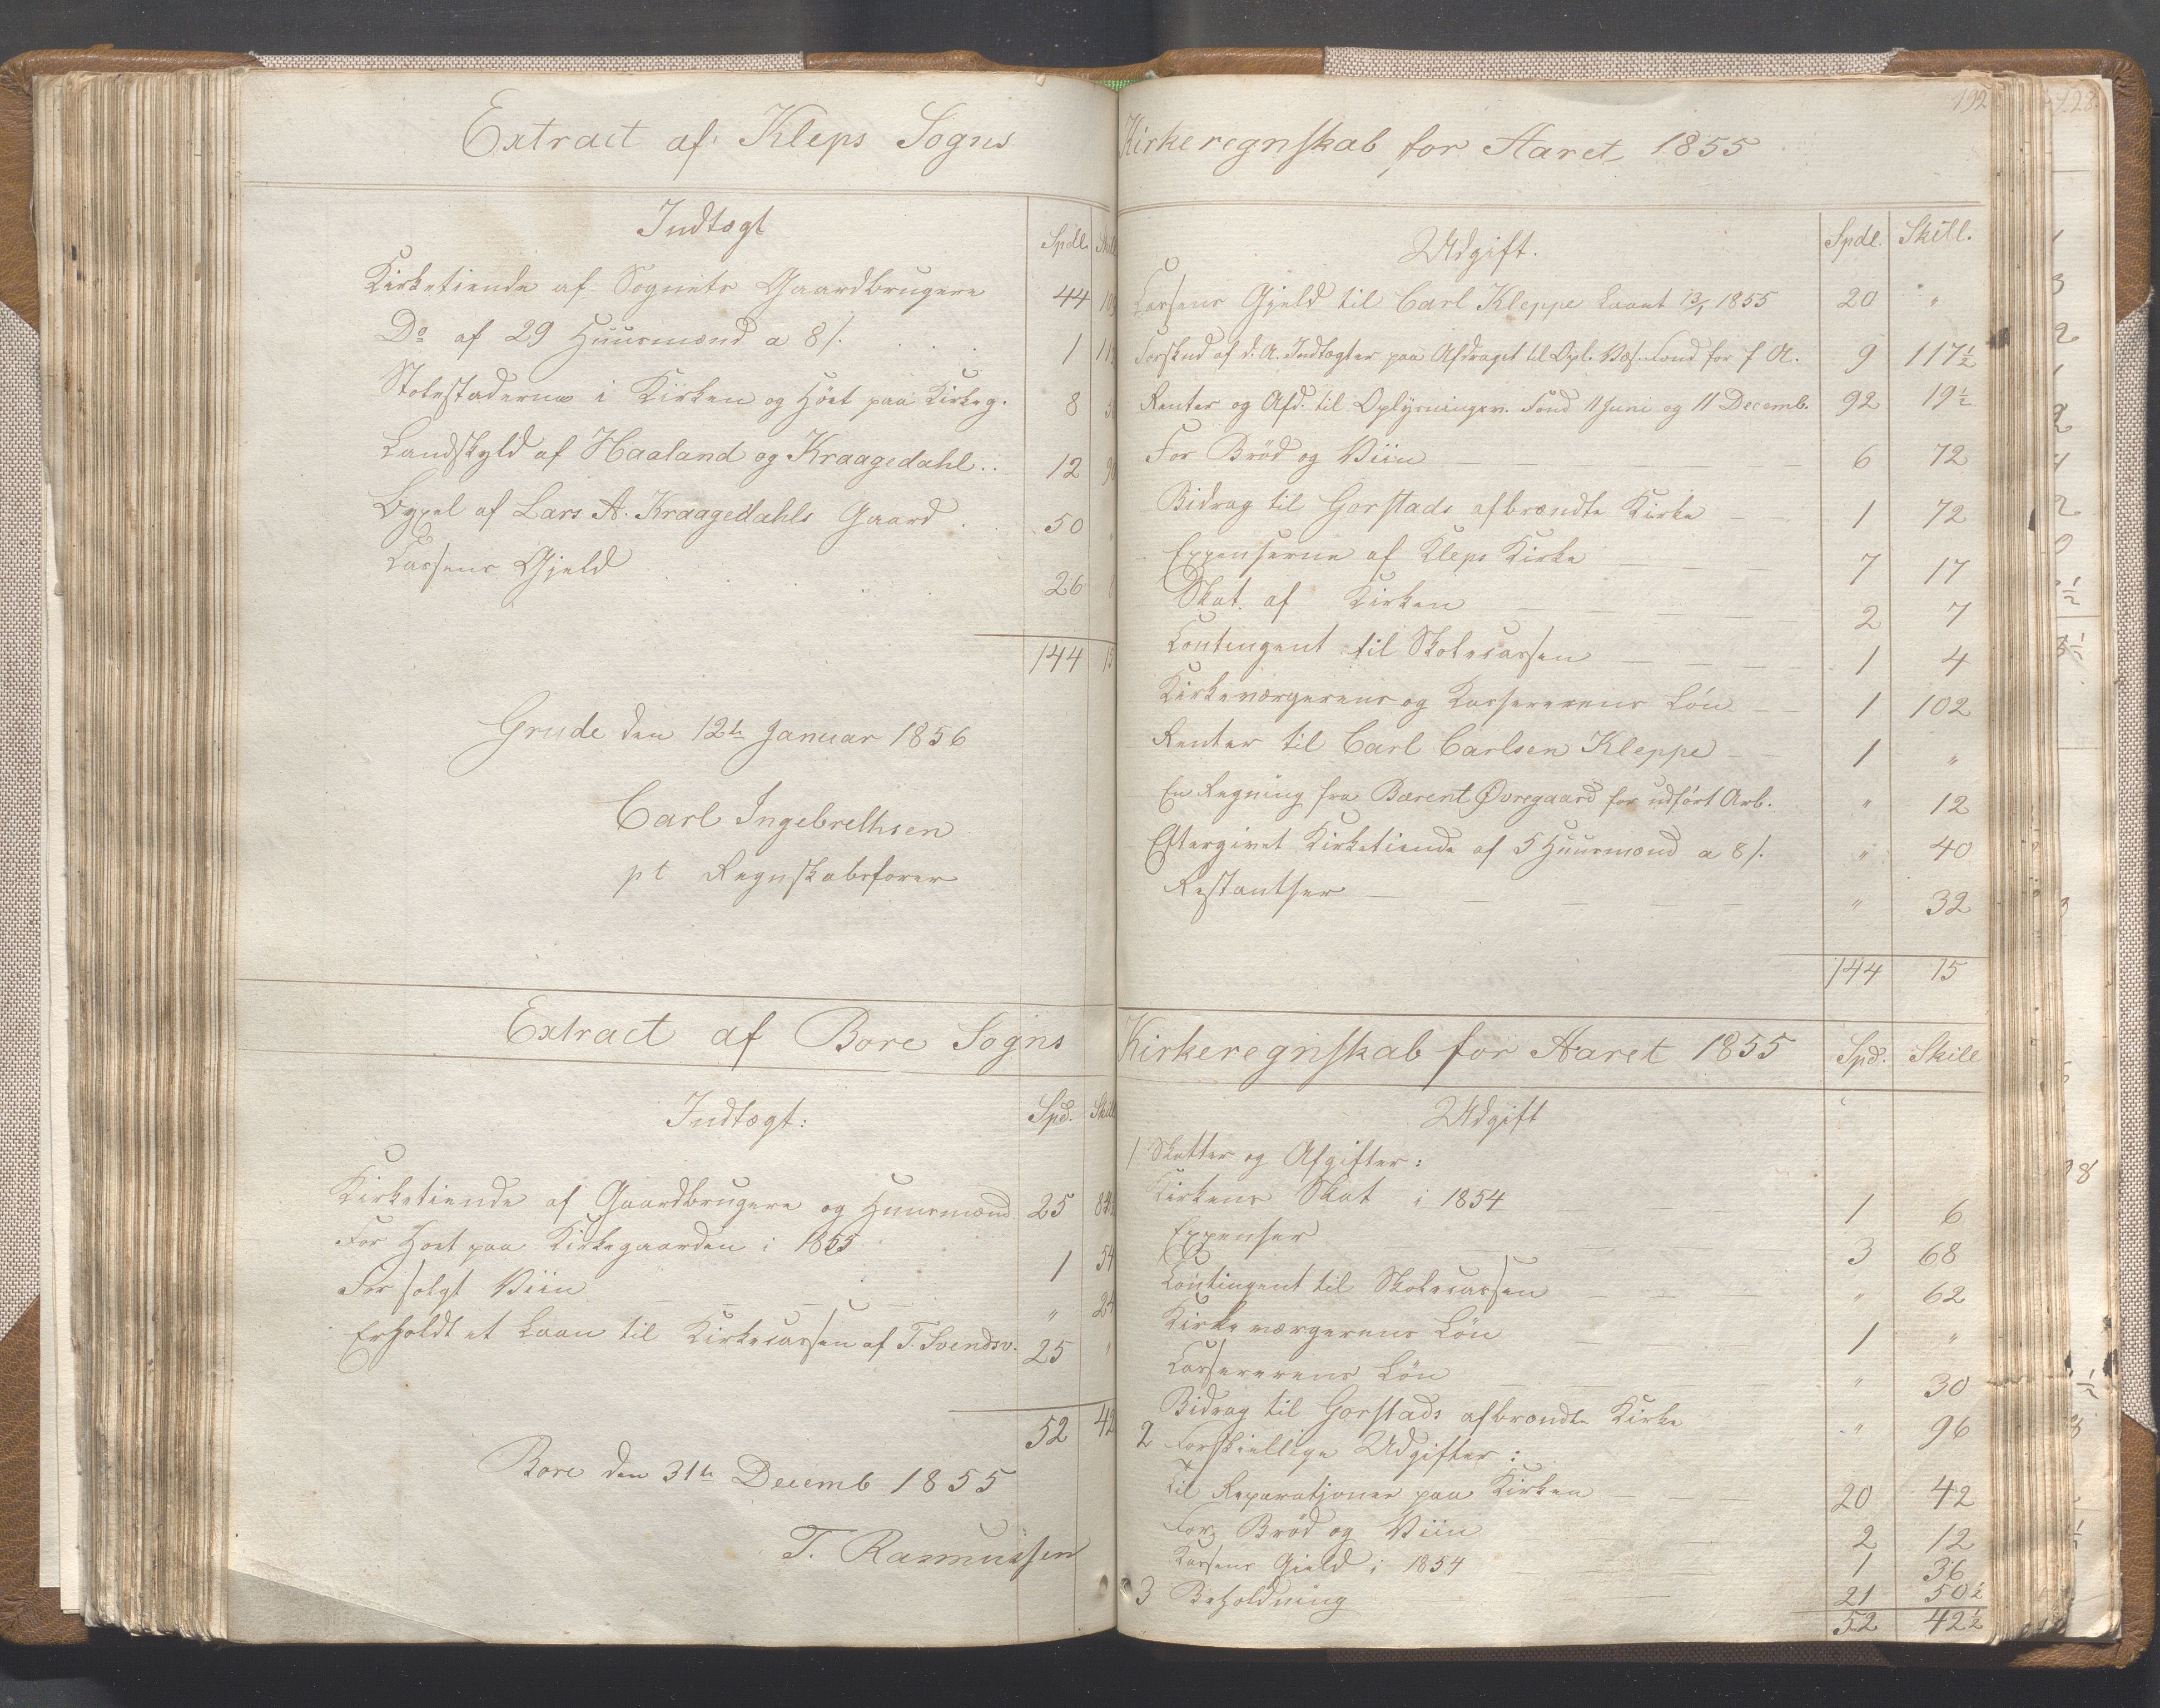 Extract af Kleps Sogns
Indtægt
Spdl. Skill
Kirketiende af Sognets Gaardbrugere 44
Do af 29 Huusmænd a 8 /. 1
Stolestaderne i Kirken og Höet paa Kirkeg. 8
Landskyld af Haaland og Kraagedahl .. 12
Bygsel af Lars A. Kraagedahls Gaard . . 50
Cassens Gjeld 26
144 15
Grude den 12te Januar 1856
Carl Ingebrethsen
pt Regnskabsforer
Extract af Bore Sogns
Indtægt:
Spd. Skill
Kirketiende af Gaardbrugere og Huusmænd 25
For Höet paa Kirkegaarden i 1855 1 54
For solgt Viin " 24
Erholdt et Laan til Kirkecassen af T. Svendsv. 25 "
52 42
Bore den 31te Decemb 1855
T. Rasmussen
192
Kirkeregnskab for Aaret 1855
Udgift.
Spdl. Skill.
Cassens Gjeld til Carl Kleppe laant 13/1 1855 20 "
Forskud af d. A. Indtægter paa Afdraget til Opl. Væs. Fond for f A. 9 117½
Renter og Afd. til Oplysningsv. Fond 11 Juni og 11 Decemb. 92 19½
For Bröd og Viin 6 72
Bidrag til Gorstads afbrændte Kirke 1 72
Expenserne af Kleps Kirke 7 17
Skat af Kirken 2 7
Contingent til Skolecassen 1 4
Kirkeværgerens og Kassererens Lön 1 102
Renter til Carl Carlsen Kleppe 1 "
En Regning fra Bærent Øvregaard for udfört Arb. " 12
Eftergivet Kirketiende af 5 Huusmænd a 8 /. " 40
Restantser " 32
144 15
Kirkeregnskab for Aaret 1855 Spd. Skill
Udgift
1 Skatter og Afgifter:
Kirkens Skat i 1854 1 6
Expenser 3 68
Contingent til Skolecassen " 62
Kirkeværgerens Lön 1 "
Cassererens Lön " 30
Bidrag til Gorstads afbrændte Kirke " 96
2 Forskiellige Udgifter:
til Reparationer paa Kirken 20 42
For Bröd og Viin 2 12
Kassens Gield i 1854 1 36
3 Beholdning 21 50½
52 42½